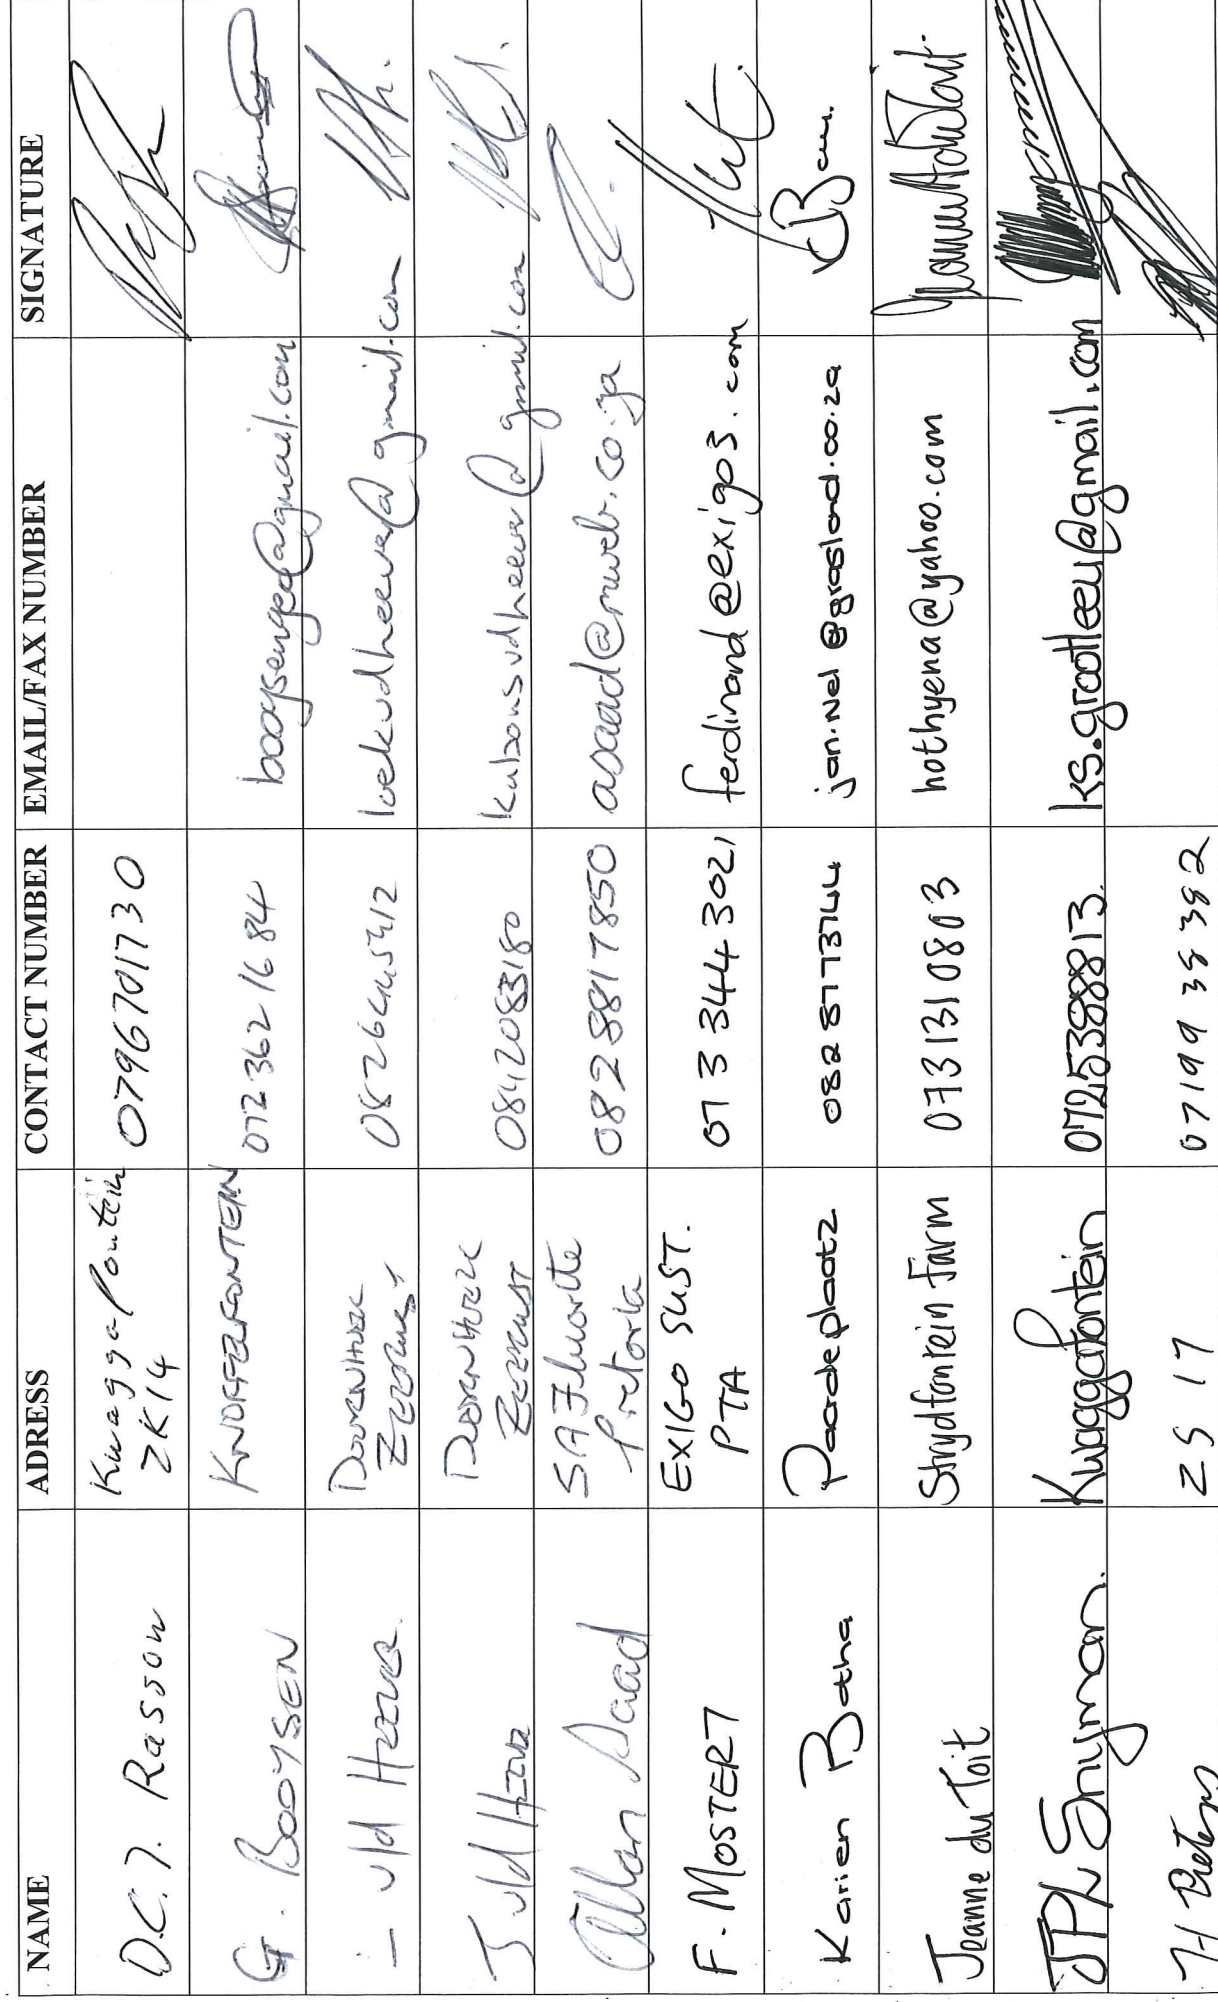 NAME ADRESS CONTACT NUMBER EMAIL/FAX NUMBER SIGNATURE
D.C.J. Rasson Kwaggafontein 0796701730
ZK14
G. BOOYSEN KNOFFELFONTEIN 072 362 1684 booysengee@gmail.com
vld Heever DOORNHOEK 0826445412 loekvdheever@gmail.com
ZEERUST
J vld Heever DOORNHOEK 0842083180 kalsonsvdheever@gmail.com
ZEERUST
Allan Saad SA Fluorite 0828817850 asaad@mweb.co.za
Pretoria
F. MOSTERT EXIGO SUST. 073 344 3021 ferdinand@exigo3.com
PTA
Karien Botha Paardeplaatz 082 8773744 jan.nel@grasland.co.za
Jeanne du Toit Strydfontein Farm 0731310803 hothyena@yahoo.com
JPL Snyman. Kwaggafontein 0725388813. ks.grootleeu@gmail.com
H Pieters 25 17 07199 38382